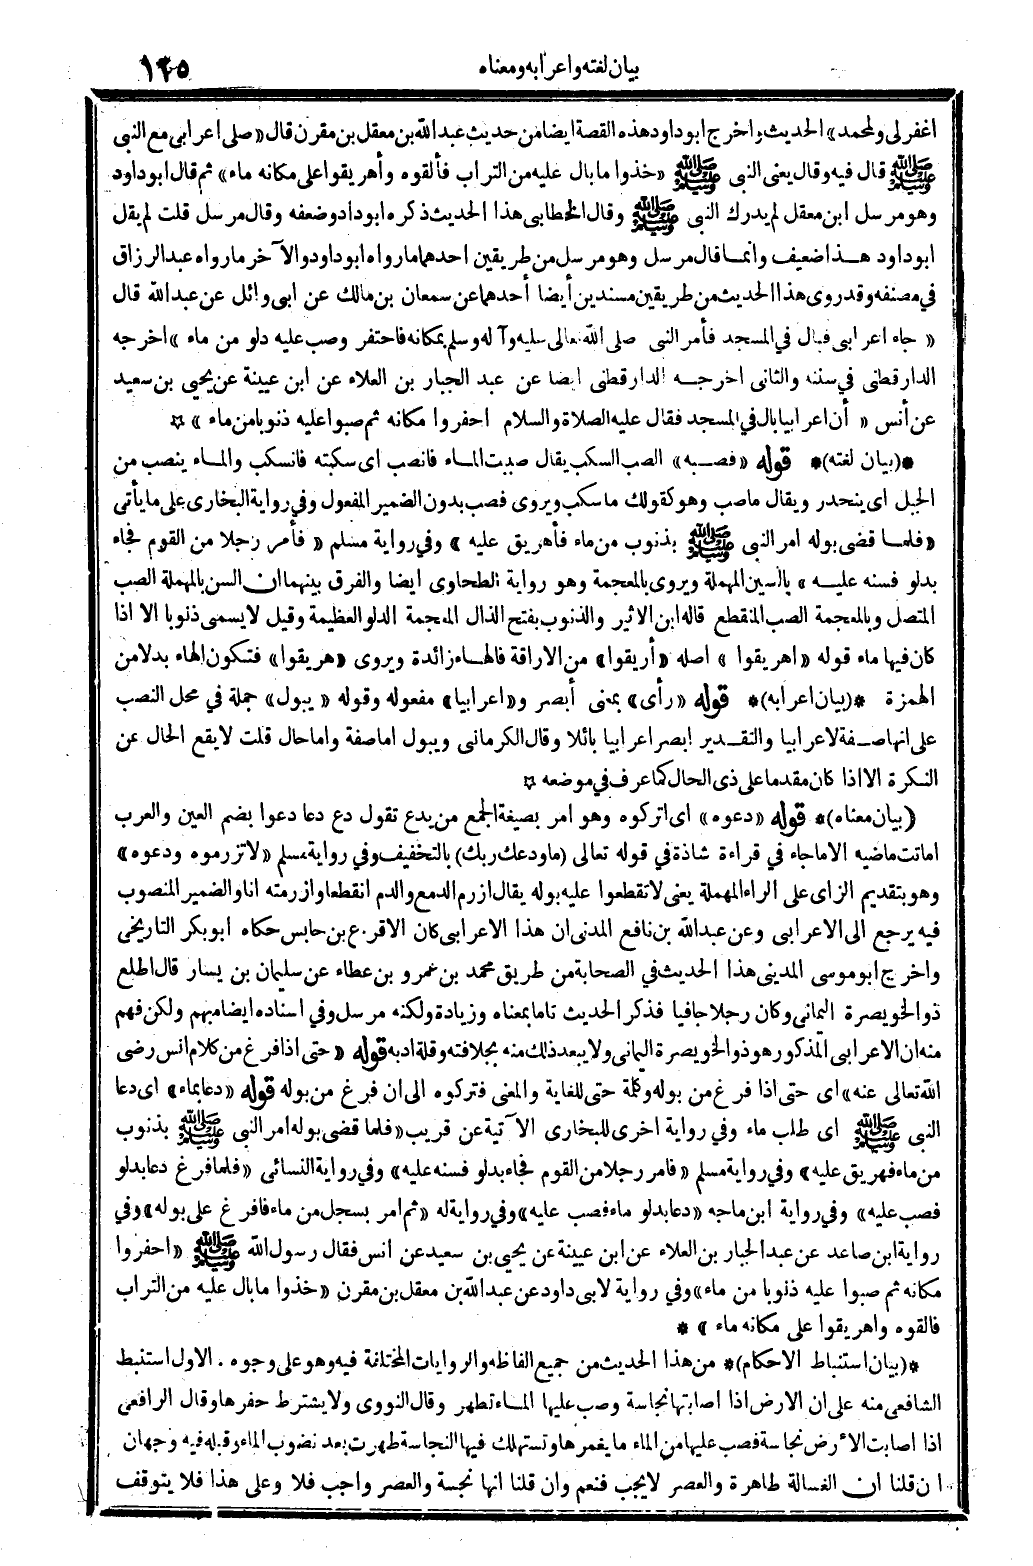 بيان لغته واعرابه ومعناه ١٢٥
اغفر لى ولمحمد» الحديث واخرج ابو داود هذه القصة ايضا من حديث عبدالله بن معقل بن مقرن قال «صلى اعرابى مع النبى
ﷺ قال فيه وقال يعنى النبى ﷺ «خذوا ما بال عليه من التراب فألقوه وأهريقوا على مكانه ماء» ثم قال ابو داود
وهو مرسل ابن معقل لم يدرك النبى ﷺ وقال الخطابى هذا الحديث ذكره ابو داود وضعفه وقال مرسل قلت لم يقل
ابو داود هذا ضعيف وانما قال مرسل وهو مرسل من طريقين احدهما مارواه ابو داود والآخر مارواه عبدالرزاق
في مصنفه وقد روى هذا الحديث من طريقين مسندين أيضا أحدهما عن سمعان بن مالك عن ابى وائل عن عبدالله قال
« جاء اعرابى فبال في المسجد فأمر النبى صلى الله تعالى عليه وآله وسلم بمكانه فاحتفر وصب عليه دلو من ماء » اخرجه
الدارقطنى في سننه والثانى اخرجه الدارقطنى ايضا عن عبد الجبار بن العلاء عن ابن عيينة عن يحيى بن سعيد
عن أنس « أن اعرابيا بال في المسجد فقال عليه الصلاة والسلام احفروا مكانه ثم صبوا عليه ذنوبا من ماء » ☆
*(بيان لغته)* قوله «فصبه» الصب السكب يقال صببت الماء فانصب اى سكبته فانسكب والماء ينصب من
الجبل اى ينحدر ويقال ماصب وهو كقولك ماسكب ويروى فصب بدون الضمير المفعول وفي رواية البخارى على ما يأتى
«فلما قضى بوله امر النبى ﷺ بذنوب من ماء فأهريق عليه » وفي رواية مسلم « فأمر رجلا من القوم فجاء
بدلو فسنه عليه » بالسين المهملة ويروى بالمعجمة وهو رواية الطحاوى ايضا والفرق بينهما ان السن بالمهملة الصب
المتصل وبالمعجمة الصب المنقطع قاله ابن الاثير والذنوب بفتح الذال المعجمة الدلو العظيمة وقيل لا يسمى ذنوبا الا اذا
كان فيها ماء قوله «اهريقوا » اصله «أريقوا» من الاراقة فالهاء زائدة ويروى «هريقوا» فتكون الهاء بدلا من
الهمزة *(بيان اعرابه)* قوله «رأى» بمعنى أبصر و«اعرابيا» مفعوله وقوله « يبول» جملة في محل النصب
على انها صفة لاعرابيا والتقدير ابصر اعرابيا بائلا وقال الكرمانى ويبول اما صفة واما حال قلت لا يقع الحال عن
النكرة الا اذا كان مقدما على ذى الحال كما عرف في موضعه ☆
(بيان معناه)* قوله «دعوه» اى اتركوه وهو امر بصيغة الجمع من يدع تقول دع دعا دعوا بضم العين والعرب
اماتت ماضيه الا ماجاء في قراءة شاذة في قوله تعالى (ماودعك ربك) بالتخفيف وفي رواية مسلم «لا تزرموه ودعوه»
وهو بتقديم الزاى على الراء المهملة يعنى لا تقطعوا عليه بوله يقال ازرم الدمع والدم انقطعا وازرمته انا والضمير المنصوب
فيه يرجع الى الاعرابى وعن عبدالله بن نافع المدنى ان هذا الاعرابى كان الاقرع بن حابس حكاه ابو بكر التاريخى
واخرج ابو موسى المدينى هذا الحديث في الصحابة من طريق محمد بن عمرو بن عطاء عن سليمان بن يسار قال اطلع
ذوالخويصرة اليمانى وكان رجلا جافيا فذكر الحديث تاما بمعناه وزيادة ولكنه مرسل وفي اسناده ايضا مبهم ولكن فهم
منه ان الاعرابى المذكور هو ذوالخويصرة اليمانى ولا يبعد ذلك منه بجلافته وقلة ادبه قوله « حتى اذا فرغ من كلام انس رضى
الله تعالى عنه» اى حتى اذا فرغ من بوله وكلمة حتى للغاية والمعنى فتركوه الى ان فرغ من بوله قوله «دعا بماء» اى دعا
النبى ﷺ اى طلب ماء وفي رواية اخرى للبخارى الآتية عن قريب «فلما قضى بوله امر النبى ﷺ بذنوب
من ماء فهريق عليه» وفي رواية مسلم «فامر رجلا من القوم فجاء بدلو فسنه عليه» وفي رواية النسائى «فلما فرغ دعا بدلو
فصب عليه» وفي رواية ابن ماجه «دعا بدلو ماء فصب عليه» وفي رواية له «ثم امر بسجل من ماء فافرغ على بوله» وفي
رواية ابن صاعد عن عبدالجبار بن العلاء عن ابن عيينة عن يحيى بن سعيد عن انس فقال رسول الله ﷺ «احفروا
مكانه ثم صبوا عليه ذنوبا من ماء» وفي رواية لابى داود عن عبدالله بن معقل بن مقرن «خذوا ما بال عليه من التراب
فالقوه واهريقوا على مكانه ماء » *
*(بيان استنباط الاحكام)* من هذا الحديث من جميع الفاظه والروايات المختلفة فيه وهو على وجوه . الاول استنبط
الشافعى منه على ان الارض اذا اصابتها نجاسة وصب عليها الماء تطهر وقال النووى ولا يشترط حفرها وقال الرافعى
اذا اصابت الأرض نجاسة فصب عليها من الماء ما يغمرها وتستهلك فيها النجاسة طهرت بعد نضوب الماء وقبله فيه وجهان
ان قلنا ان الغسالة طاهرة والعصر لا يجب فنعم وان قلنا انها نجسة والعصر واجب فلا وعلى هذا فلا يتوقف